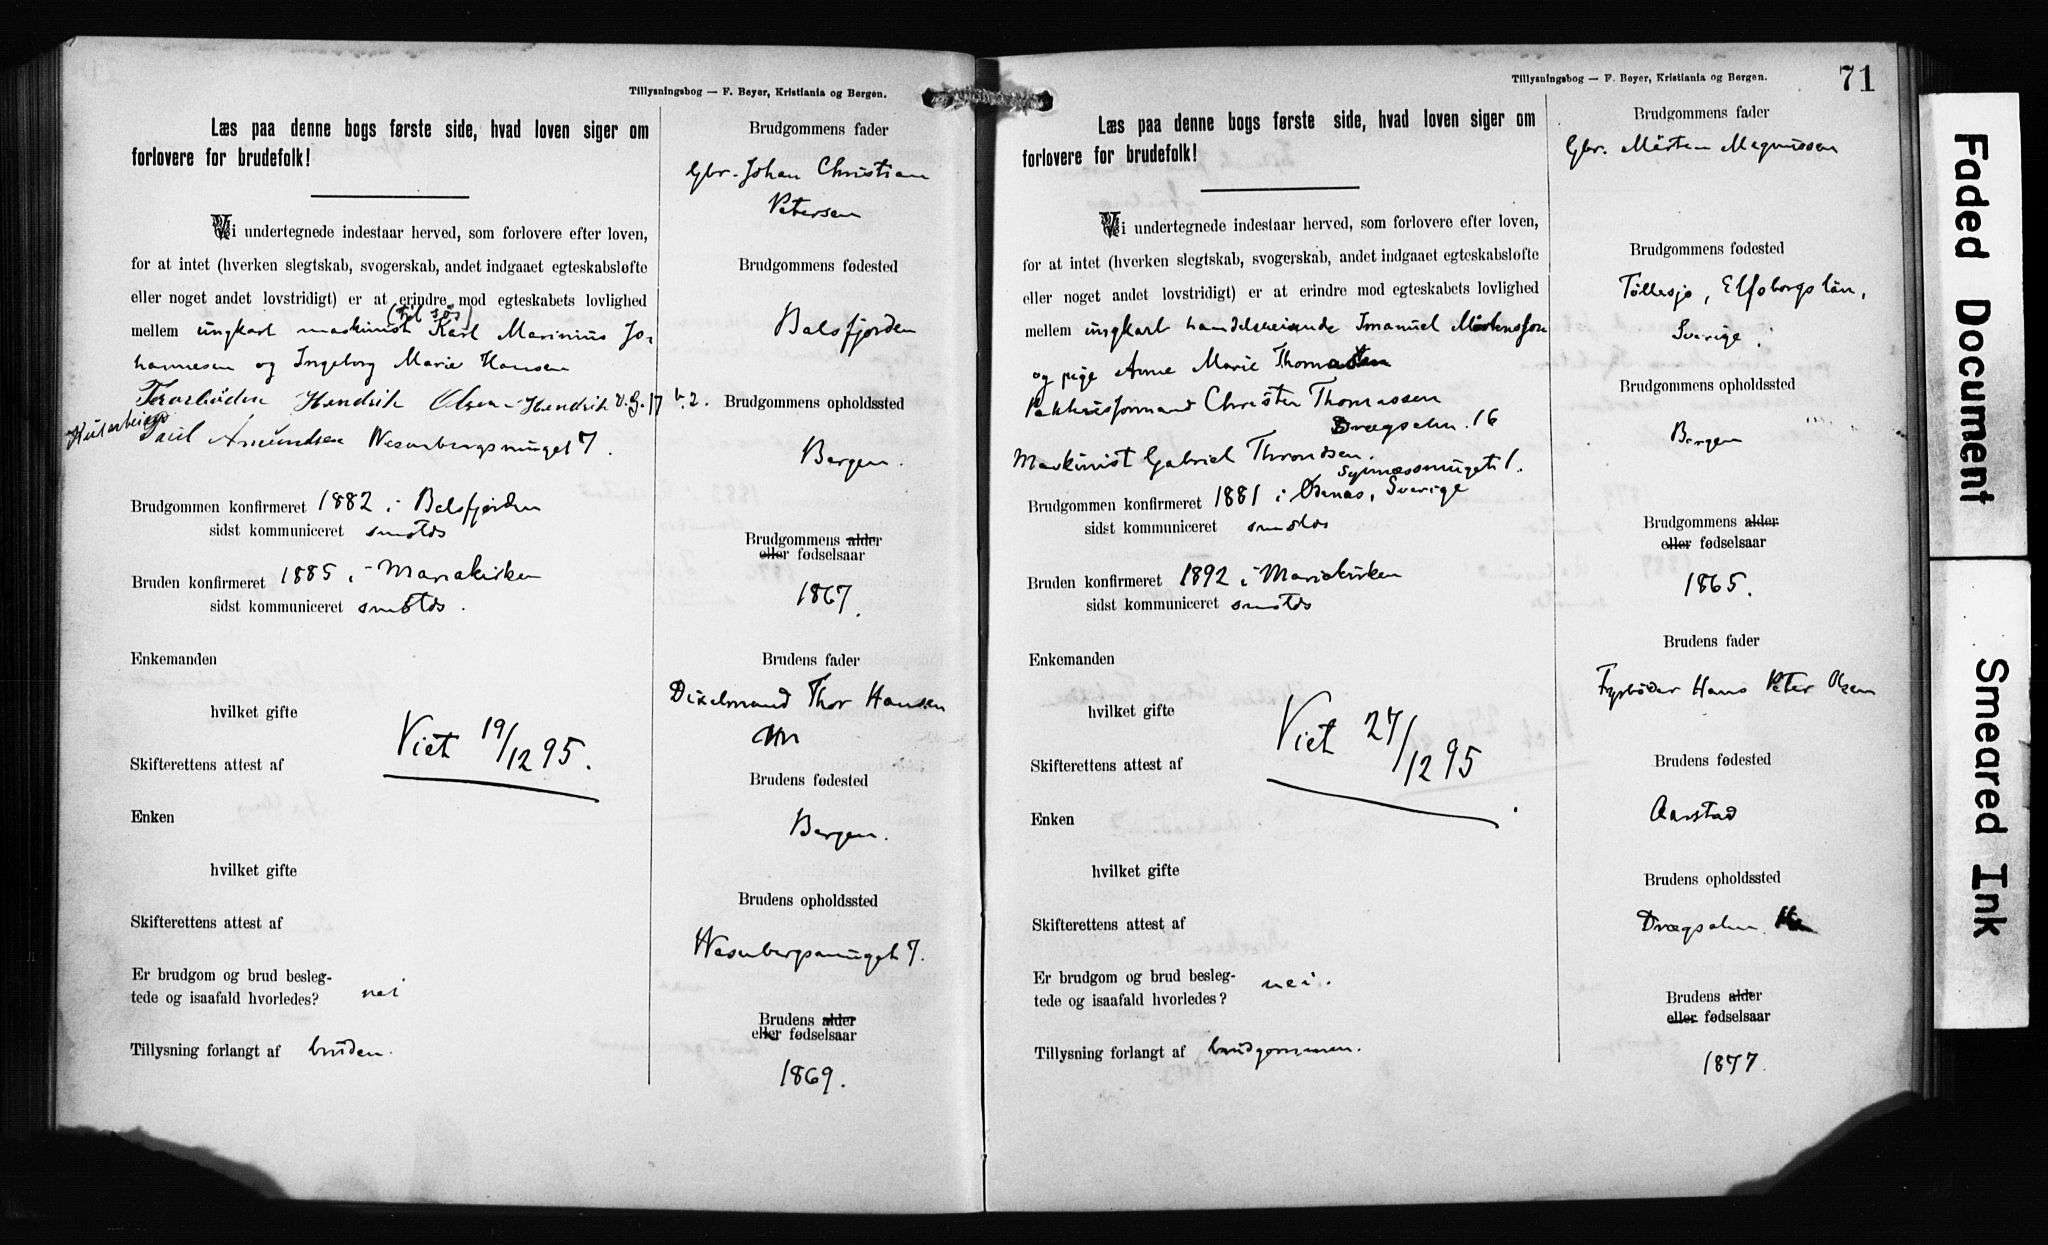 Tillysningsbog — F. Beyer, Kristiania og Bergen.
Læs paa denne bogs første side, hvad loven siger om
forlovere for brudefolk!
Vi undertegnede indestaar herved, som forlovere efter loven,
for at intet (hverken slegtskab, svogerskab, andet indgaaet egteskabsløfte
eller noget andet lovstridigt) er at erindre mod egteskabets lovlighed
(til søs)
mellem ungkarl maskinist Karl Marinius Jo-
hannesen og Ingeborg Marie Hansen
Hendrik Olsen Hendrik v. G. 17 b. 2.
Paul Amundsen Wesenbergsmuget 7.
Brudgommen konfirmeret 1882 i Balsfjorden
sidst kommuniceret smstds
Bruden konfirmeret 1885 i Mariakirken
sidst kommuniceret smstds.
Enkemanden
hvilket gifte
Viet 19/12 95.
Skifterettens attest af
Enken
hvilket gifte
Skifterettens attest af
Er brudgom og brud besleg-
tede og isaafald hvorledes? nei
Tillysning forlangt af bruden.
Brudgommens fader
Gbr. Johan Christian
Petersen
Brudgommens fødested
Balsfjorden
Brudgommens opholdssted
Bergen.
Brudgommens alder
eller fødselsaar
1867.
Brudens fader
Dixelmand Thor Hansen
Brudens fødested
Bergen.
Brudens opholdssted
Wesenbergsmuget 7.
Brudens alder
eller fødselsaar
1869.
Tillysningsbog — F. Beyer, Kristiania og Bergen.
71
Læs paa denne bogs første side, hvad loven siger om
forlovere for brudefolk!
Vi undertegnede indestaar herved, som forlovere efter loven,
for at intet (hverken slegtskab, svogerskab, andet indgaaet egteskabsløfte
eller noget andet lovstridigt) er at erindre mod egteskabets lovlighed
mellem ungkarl handelsreisende Imanuel Mårtensson
og pige Anne Marie Thomassen
Pakhusformand Christen Thomassen
Drægsalm. 16
Maskinist Gabriel Throndsen.
Sypnæssmuget 1.
Brudgommen konfirmeret 1881 i Ødenäs, Sverige
sidst kommuniceret smstds
Bruden konfirmeret 1892 i Mariakirken
sidst kommuniceret smstds
Enkemanden
hvilket gifte
Viet 27/12 95
Skifterettens attest af
Enken
hvilket gifte
Skifterettens attest af
Er brudgom og brud besleg-
tede og isaafald hvorledes? nei.
Tillysning forlangt af brudgommen.
Brudgommens fader
Gbr. Mårten Magnussen
Brudgommens fødested
Töllesjö, Elfsborgs län,
Sverige.
Brudgommens opholdssted
Bergen
Brudgommens alder
eller fødselsaar
1865.
Brudens fader
Fyrbøder Hans Peter Olsen
Brudens fødested
Aarstad
Brudens opholdssted
Drægsalm.
Brudens alder
eller fødselsaar
1877.
Faded Document
Smeared Ink